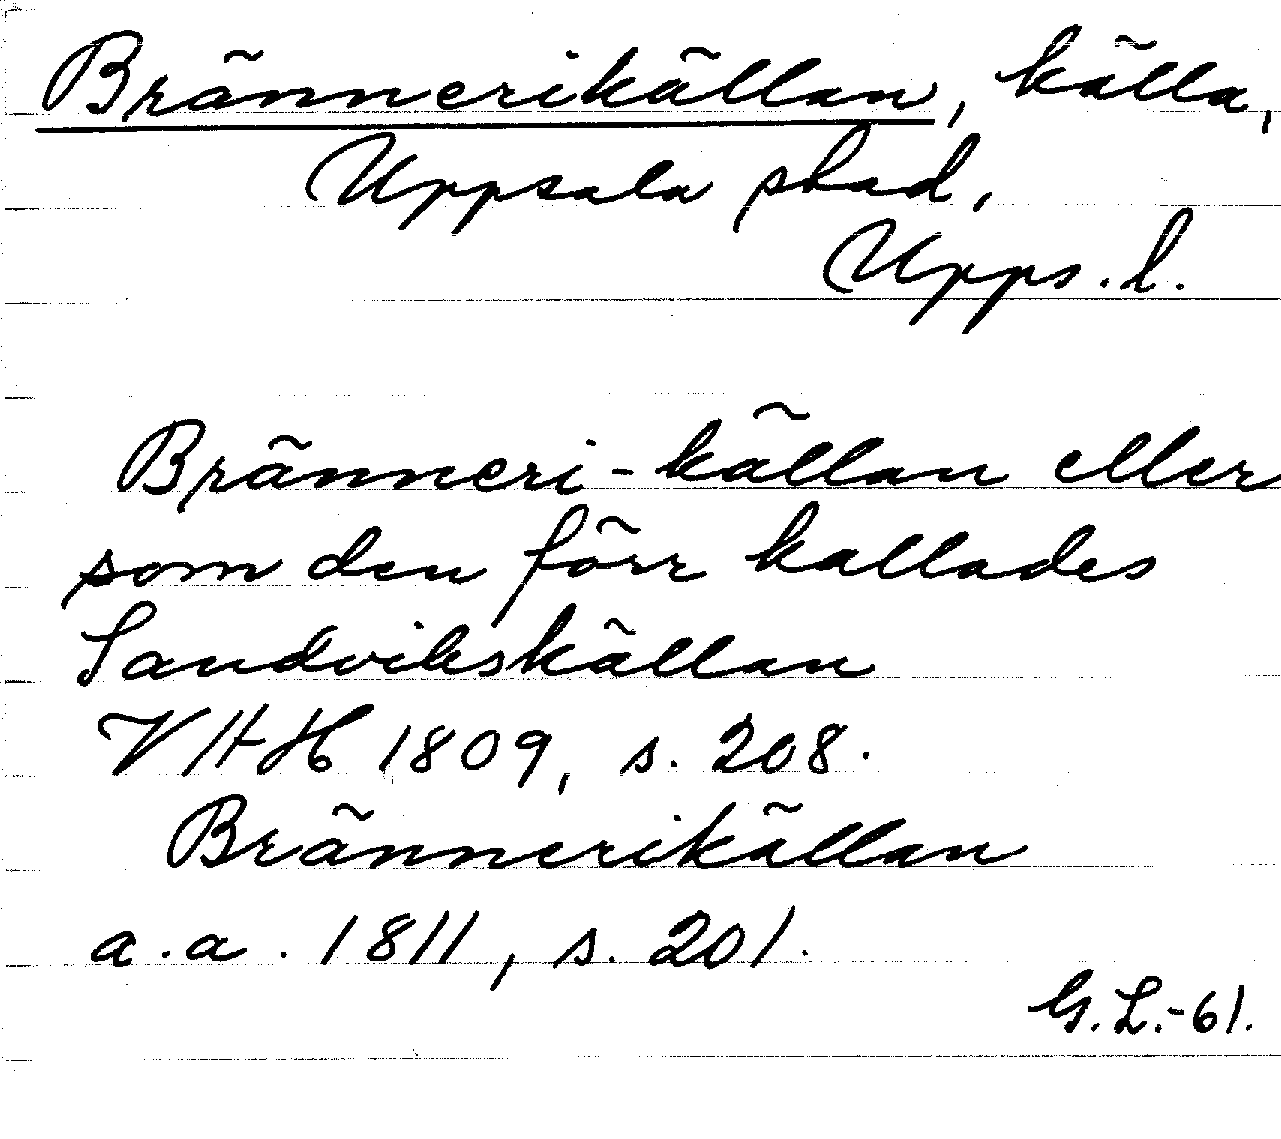 Brännerikällan, källa,
Uppsala stad,
Upps. l.
Bränneri-källan eller
som den förr kallades
Sandvikskällan
VHH 1809, s. 208.
Brännerikällan
a.a. 1811, s. 201.
G. L.-61.